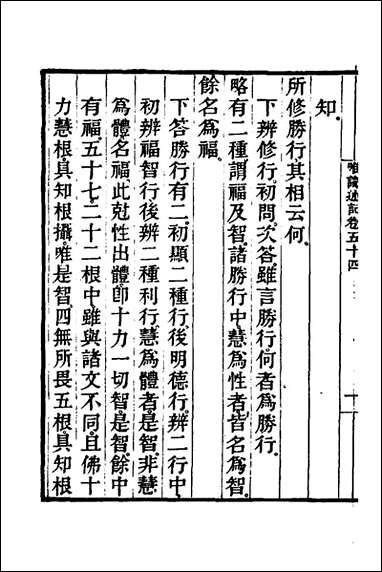 知。
所修勝行其相云何。
下辨修行。初問。次答。雖言勝行。何者爲勝行。
略有二種。謂福及智。諸勝行中。慧爲性者。皆名爲智。
餘名爲福。
下答勝行有二。初顯二種行。後明德行。辨二行中。
初辨福智行。後辨二種利行。慧爲體者。是智。非慧
爲體名福。此尅性出體。卽十力一切智。是智。餘中
有福。五十七。二十二根中。雖與諸文不同。且佛十
力慧根。具知根攝。唯是智。四無所畏五根。具知根
唯識述記卷五十四
十一